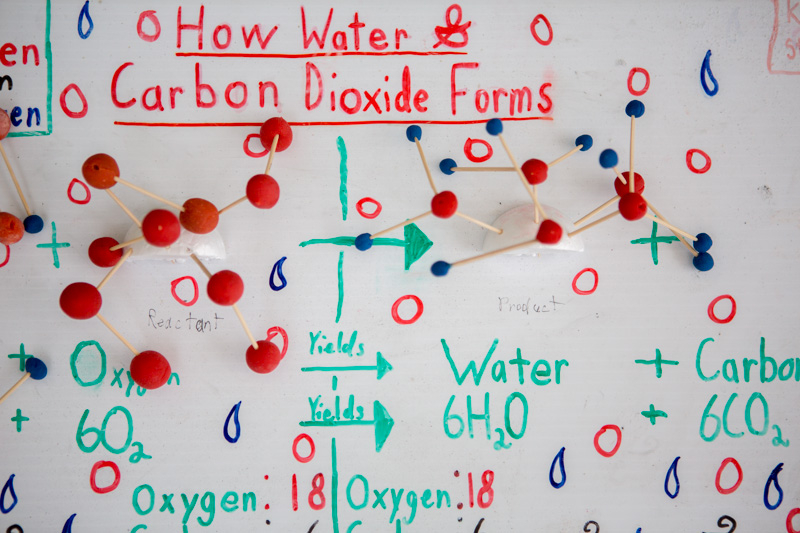 How Water &
Carbon Dioxide Forms
en
en
+
+
Reactant
Product
Yields
+ Oxygen Water + Carbon
Yields
+ 6O₂ 6H₂O + 6CO₂
Oxygen: 18 Oxygen: 18